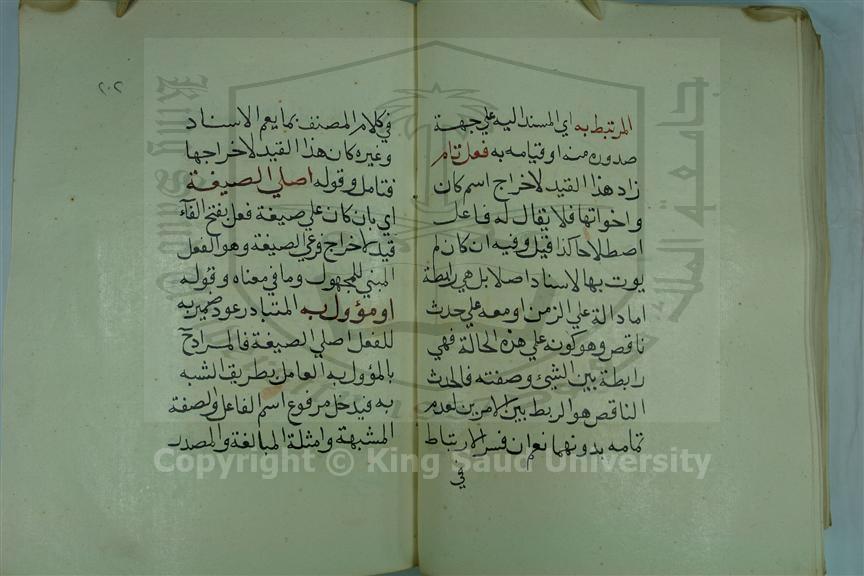 المرتبط به اي المسند اليه علي جهة
صدوره منه او قيامه به فعل تام
زاد هذا القيد لاخراج اسم كان
واخواتها فلا يقال له فاعل
اصطلاحا كذا قيل وفيه ان كان لم
يوت بها لاسناد اصلا بل هي رابطة
اما دالة علي الزمن او معه علي حدث
ناقص وهو كونه علي هذه الحالة فهي
رابطة بين الشئ وصفته فالحدث
الناقص هو الربط بين الامرين لعدم
تمامه بدونهما نعم ان فسر الارتباط
في
٢٠٢
في كلام المصنف بما يعم الاسناد
وغيره كان هذا القيد لاخراجها
فتامل وقوله اصلي الصيغة
اي بان كان علي صيغة فعل بفتح الفآء
قيد لاخراج فرعي الصيغة وهو الفعل
المبني للمجهول وما في معناه وقوله
او مؤول به المتبادر عود ضمير به
للفعل اصلي الصيغة فالمراد ح
بالمؤول به العامل بطريق الشبه
به فيدخل مرفوع اسم الفاعل والصفة
المشبهة وامثلة المبالغة والمصدر
جامعة الملك
Copyright © King Saud University